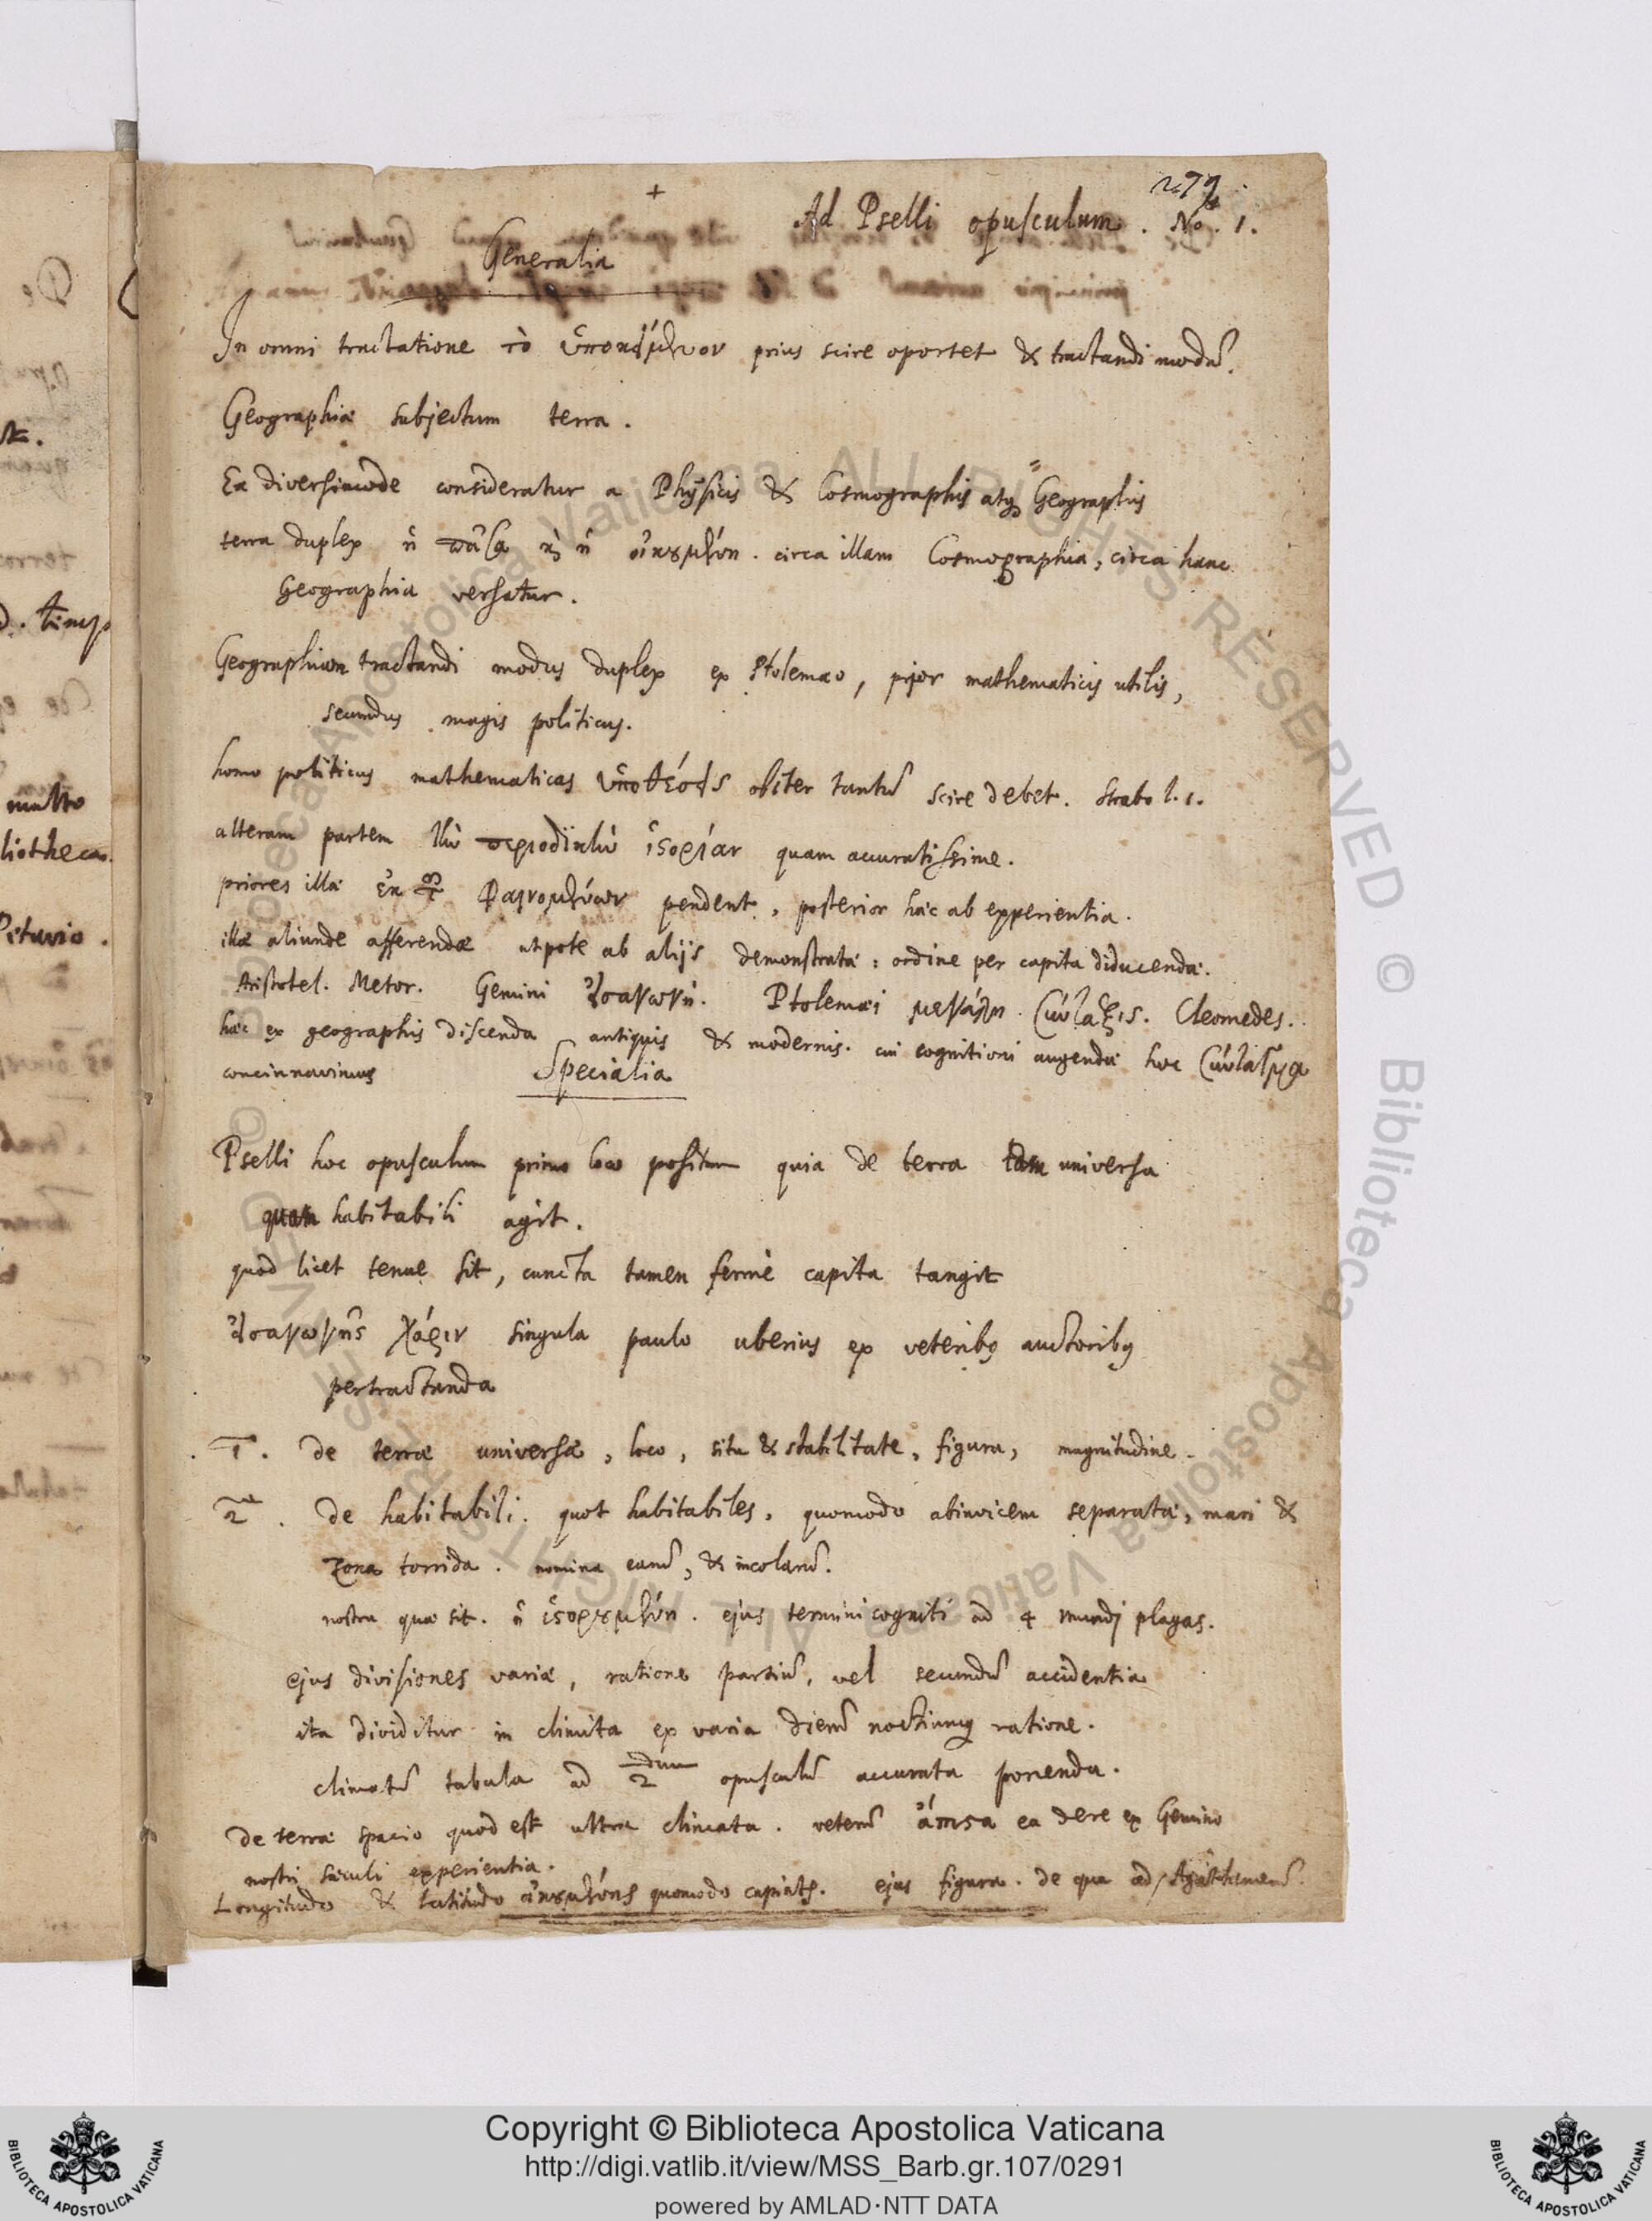 279
+
Ad Pselli opusculum. No. 1.
Generalia
In omni tractatione τὸ ὑποκείμενον prius scire oportet & tractandi modũ.
Geographiæ subjectum terra.
Ea diversimode consideratur a Physicis & Cosmographis atq Geographis
terra duplex ἡ πᾶσα κὶ ἡ οἰκουμένη. circa illam Cosmographia, circa hanc
Geographia versatur.
Geographiam tractandi modus duplex ex Ptolemæo, prior mathematicis utilis,
secundus magis politicus.
homo politicus mathematicas ὑποθέσεις obiter tantũ scire debet. Strabo l. 1.
alteram partem τὴν περιοδικὴν ἱστορίαν quam accuratissime.
priores illæ ἐκ τῶν φαινομένων pendent, posterior hæc ab experientia.
illæ aliunde afferendæ utpote ab alijs demonstratæ: ordine per capita diducendæ.
Aristotel. Meteor. Gemini εἰσαγωγή. Ptolemæi μεγάλη σύνταξις. Cleomedes.
hæc ex geographis discenda antiquis & modernis. cui cognitioni augendæ hoc σύνταγμα
concinnavimus
Specialia
Pselli hoc opusculum primo loco positum quia de terra tam universa
quam habitabili agit.
quod licet tenue sit, cuncta tamen fermè capita tangit
εἰσαγωγῆς χάριν singula paulo uberius ex veteribq auctoribq
pertractanda
1. de terræ universæ, loco, situ & stabilitate, figura, magnitudine.
2. de habitabili. quot habitabiles, quomodo abinvicem separatæ, mari &
zona torrida. nomina earũ, & incolarũ.
nostra quæ sit. ἡ ἱστορουμένη. ejus termini cogniti ad 4 mundj plagas.
ejus divisiones variæ, ratione partiũ, vel secundũ accidentia
ita dividitur in climata ex varia dierũ noctiumq ratione.
climatũ tabula ad 2dum opusculũ accurata ponenda.
de terræ spacio quod est ultra climata. veterũ ἄπιστα ea de re ex Gemino
nostri sæculi experientia.
Longitudo & latitudo οἰκουμένης quomodo capiatr. ejus figura. de qua ad Agathemerũ.
Copyright © Biblioteca Apostolica Vaticana
http://digi.vatlib.it/view/MSS_Barb.gr.107/0291
powered by AMLAD·NTT DATA